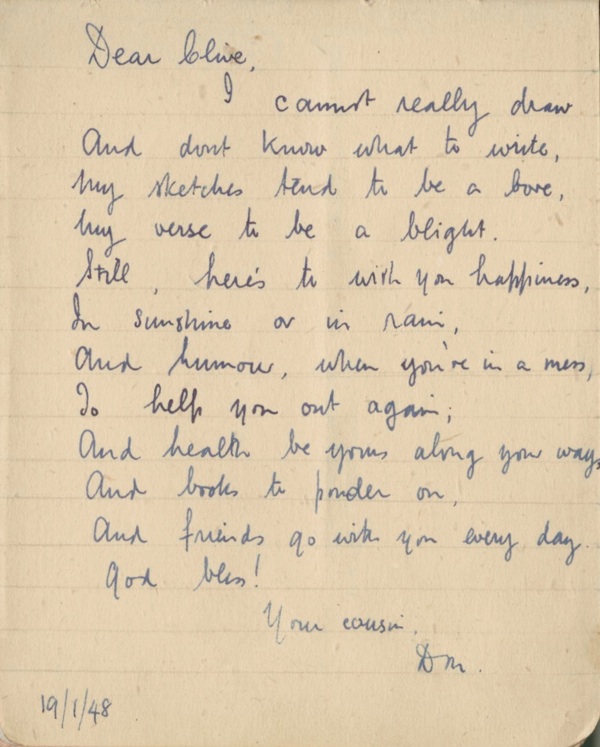 Dear Clive,
I cannot really draw
And dont know what to write,
My sketches tend to be a bore,
My verse to be a blight.
Still, here's to wish you happiness,
In sunshine or in rain,
And humour, when you're in a mess,
To help you out again;
And health be yours along your ways
And books to ponder on,
And friends go with you every day.
God bless!
Your cousin.
Don.
19/1/48